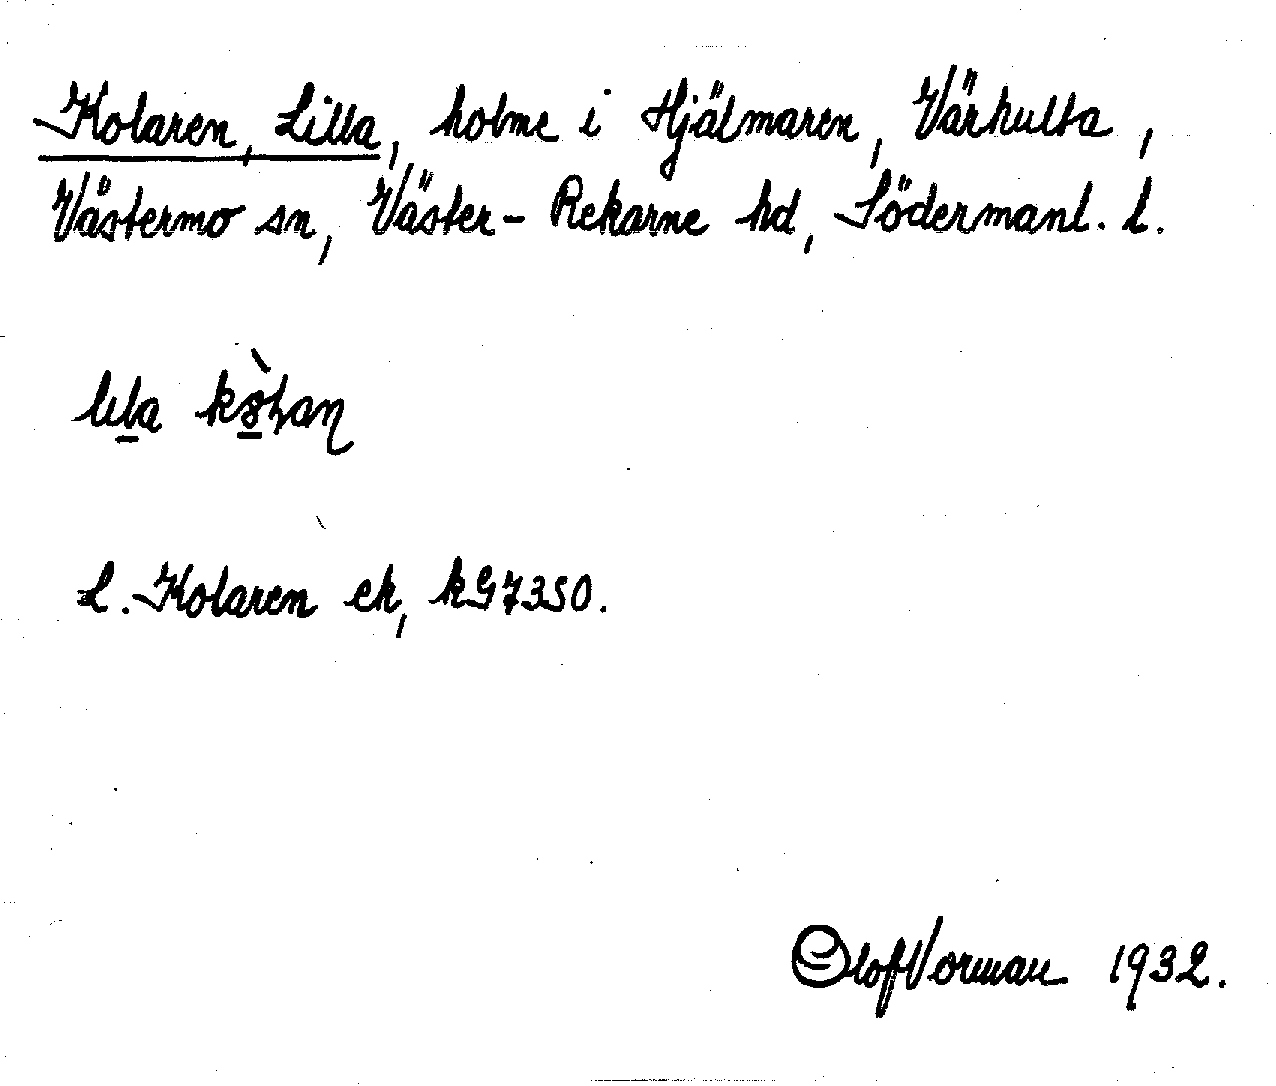 Kolaren, Lilla, holme i Hjälmaren, Värhulta,
Västermo sn, Väster-Rekarne hd, Södermanl. l.
L. Kolaren ek, kG7350.
Olof Vorman 1932.